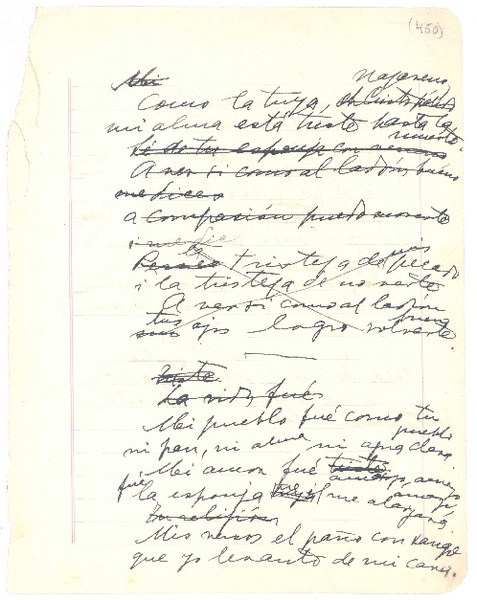 (450)
Mi
Nazareno,
Como la tuya, oh Cristo
mi alma está triste hasta la
muerte.
Sé de tu esponja con
A ver si como al ladrón bueno
me dices
a compasión puedo moverte
la tristeza de mis pecado
i la tristeza de no verte
A ver si como al ladrón
bueno
tus ojos logro volverte.
triste
La vida fué
Mi pueblo fué como tu
pueblo
ni pan, ni alma ni agua clara
Mi amor fué triste
amargo, amargo,
fué la esponja me alargara
Mis versos el paño con sangre
que yo levanto de mi cara.